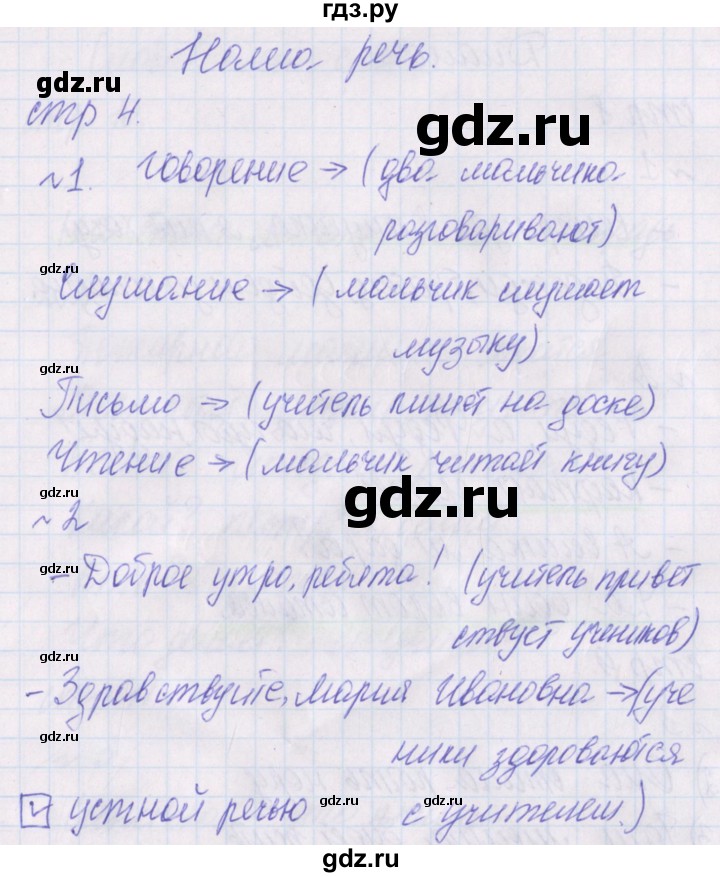 гдз.ру
Наша речь.
gdz.ru
стр 4.
gdz.ru
№1. Говорение → (два мальчика
gdz.ru
разговаривают)
gdz.ru
Слушание → (мальчик слушает
музыку)
gdz.ru
Письмо → (учитель пишет на доске)
Чтение → (мальчик читает книгу)
gdz.ru
gdz.ru
№2
gdz.ru
- Доброе утро, ребята! (учитель привет
ствует учеников)
gdz.ru
- Здравствуйте, Мария Ивановна → (уче
ники здороваются
gdz.ru
gdz.ru
gdz.ru
устной речью с учителем.)
gdz.ru